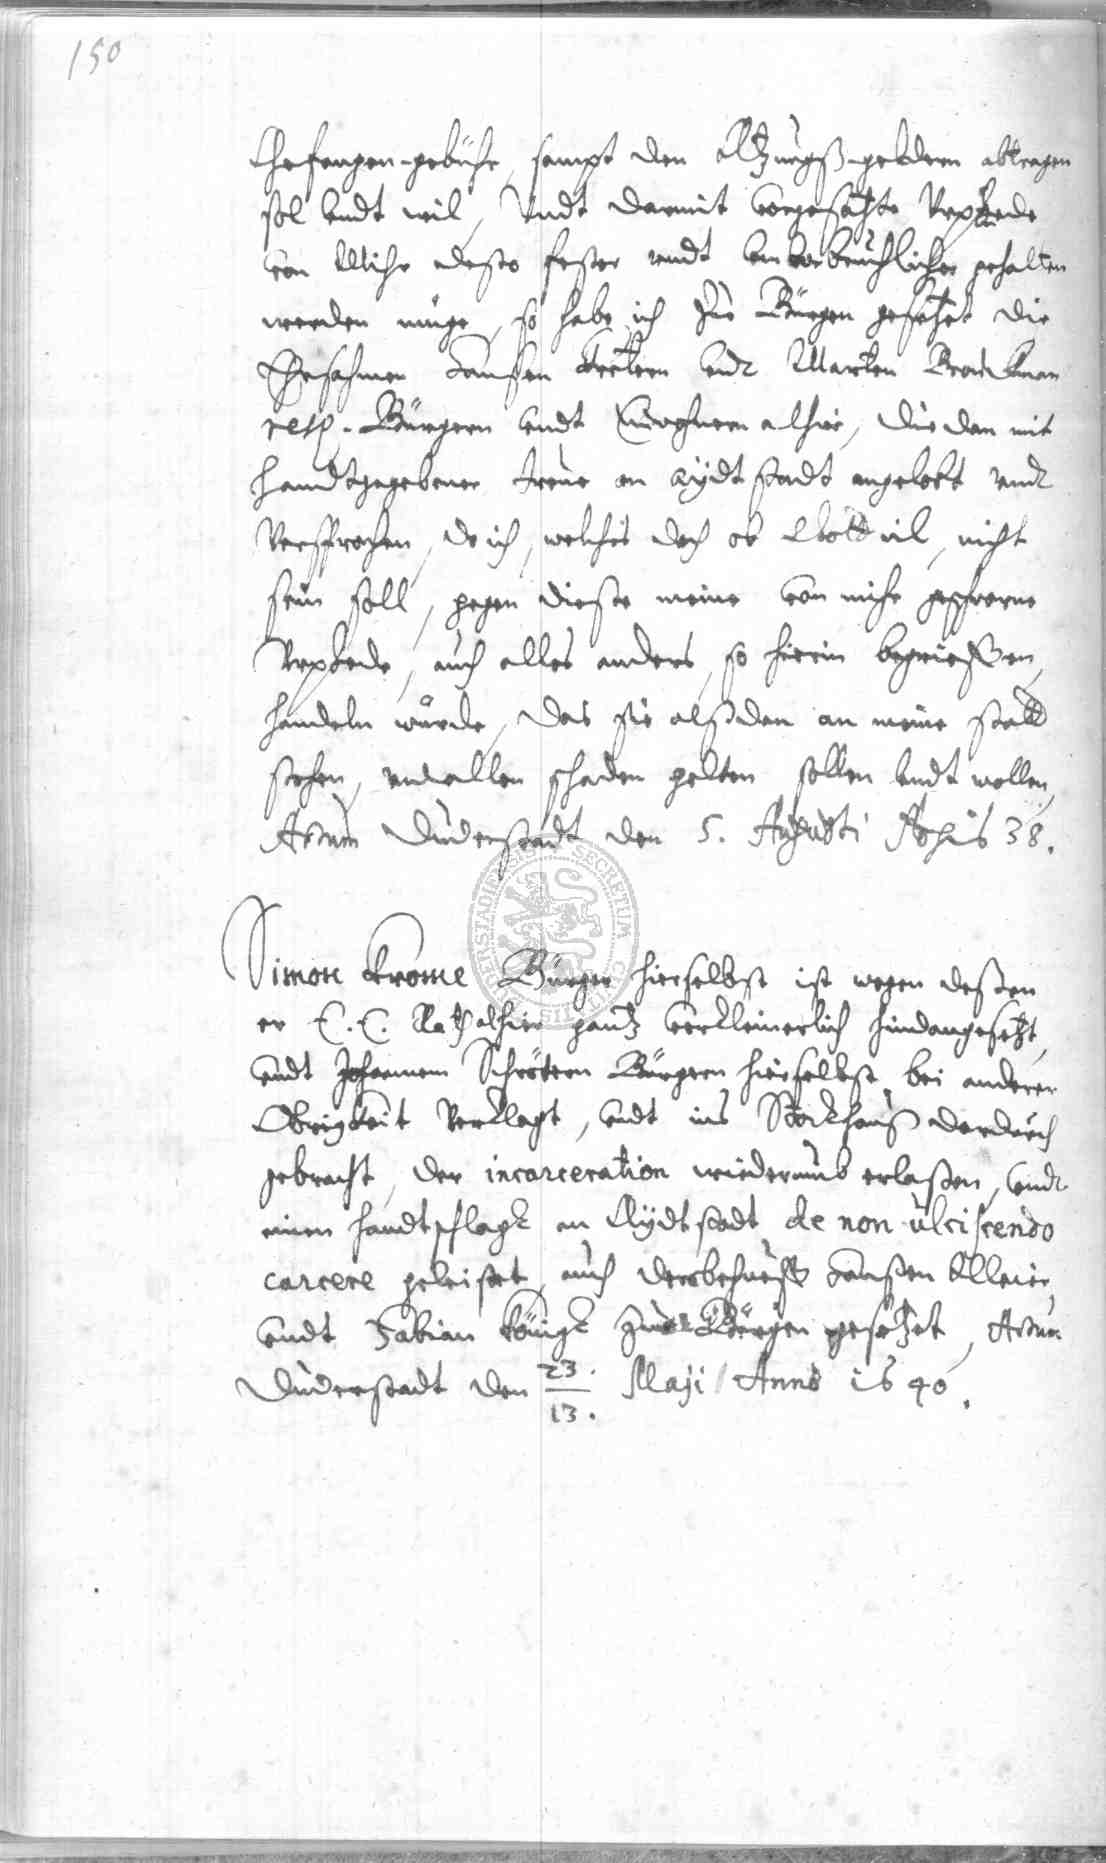 150
Gefangen-gebühr, sampt den Atzungß-geldern abtragen
sol undt wil, Undt darmit vorgesatzte Urphede
von Mihr desto fester undt unverbrüchlicher gehalten
werden müge, so habe ich zue Bürgen gesetzet die
Ehrsahmen Hansen undt Marten Brockman
resp. Bürgern undt Einwohnern alhie, die dan mit
handtgegebener treue an Eydtstadt angelobt undt
versprochen, do ich, welches doch ob Gott wil, nicht
sein soll, gegen dieße meine von mihr geschworne
Urphede, auch alles anders, so hierin begrieffen,
handeln würde, das sie alßdan an meine stadt
stehen, und allen schaden gelten sollen undt wollen,
Actum Duderstadt den 5. Augusti Ao 38.
Simon Krome Bürger hierselbst ist wegen deßen
er E. E. Rath alhier gantz verkleinerlich hindangesetzt,
undt Johannem Schrötern Bürgern hierselbst, bei anderer
Obrigkeit verklagt, undt ins Stockhauß dardurch
gebracht, der incarceration wiederumb erlaßen, undt
einen handtschlagk an Eydtstadt de non ulciscendo
carcere geleistet, auch Hansen Klleier,
undt Fabian Königk zue Bürgen gesetzet, Actum
Duderstadt den 23./13. Maji Anno 1640.
SECRETUM CIVITATIS DUDERSTADIENSIS